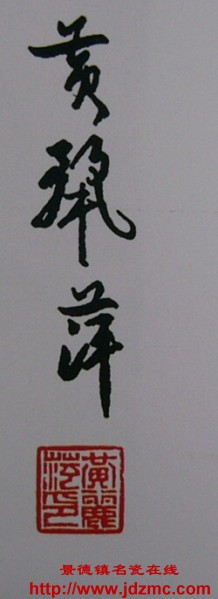 黄麗萍
黄麗萍印
景德镇名瓷在线
http://www.jdzmc.com